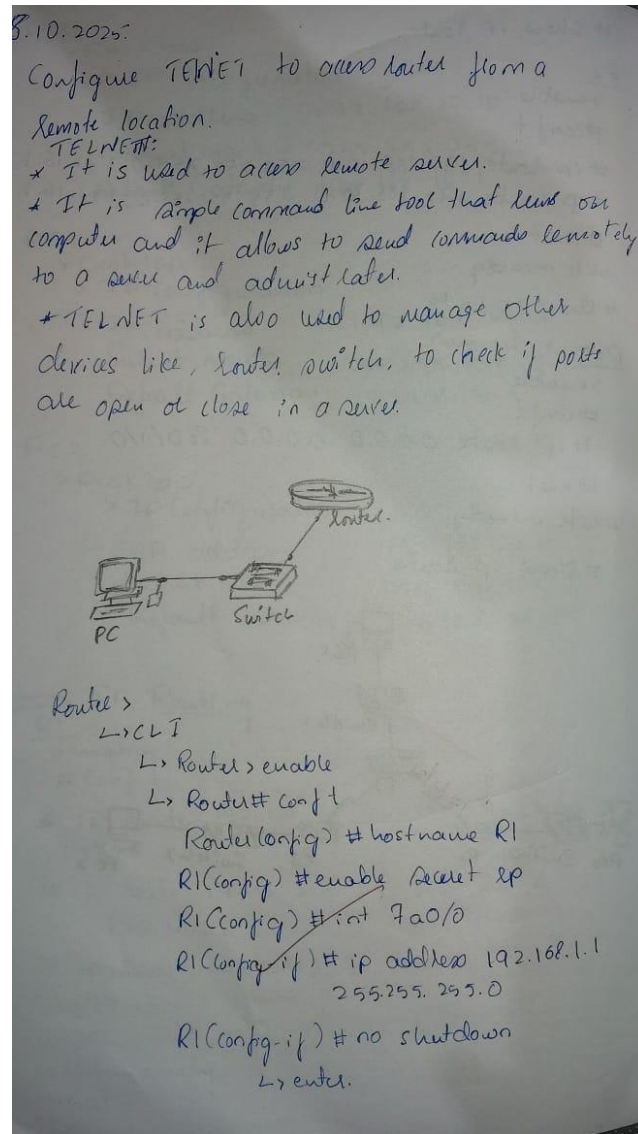 8.10.2025:
Configure TELNET to access router from a
remote location.
TELNET:
* It is used to access remote server.
* It is simple command line tool that runs on
computer and it allows to send commands remotely
to a server and administrater.
* TELNET is also used to manage other
devices like, router, switch, to check if ports
are open or close in a server.
Router.
Switch
PC
Router >
↳ CLI
↳ Router > enable
↳ Router# conf t
Router(config) # hostname R1
R1(config) # enable secret
R1(config) # int fa0/0
R1(config-if) # ip address 192.168.1.1
255.255.255.0
R1(config-if) # no shutdown
↳ enter.